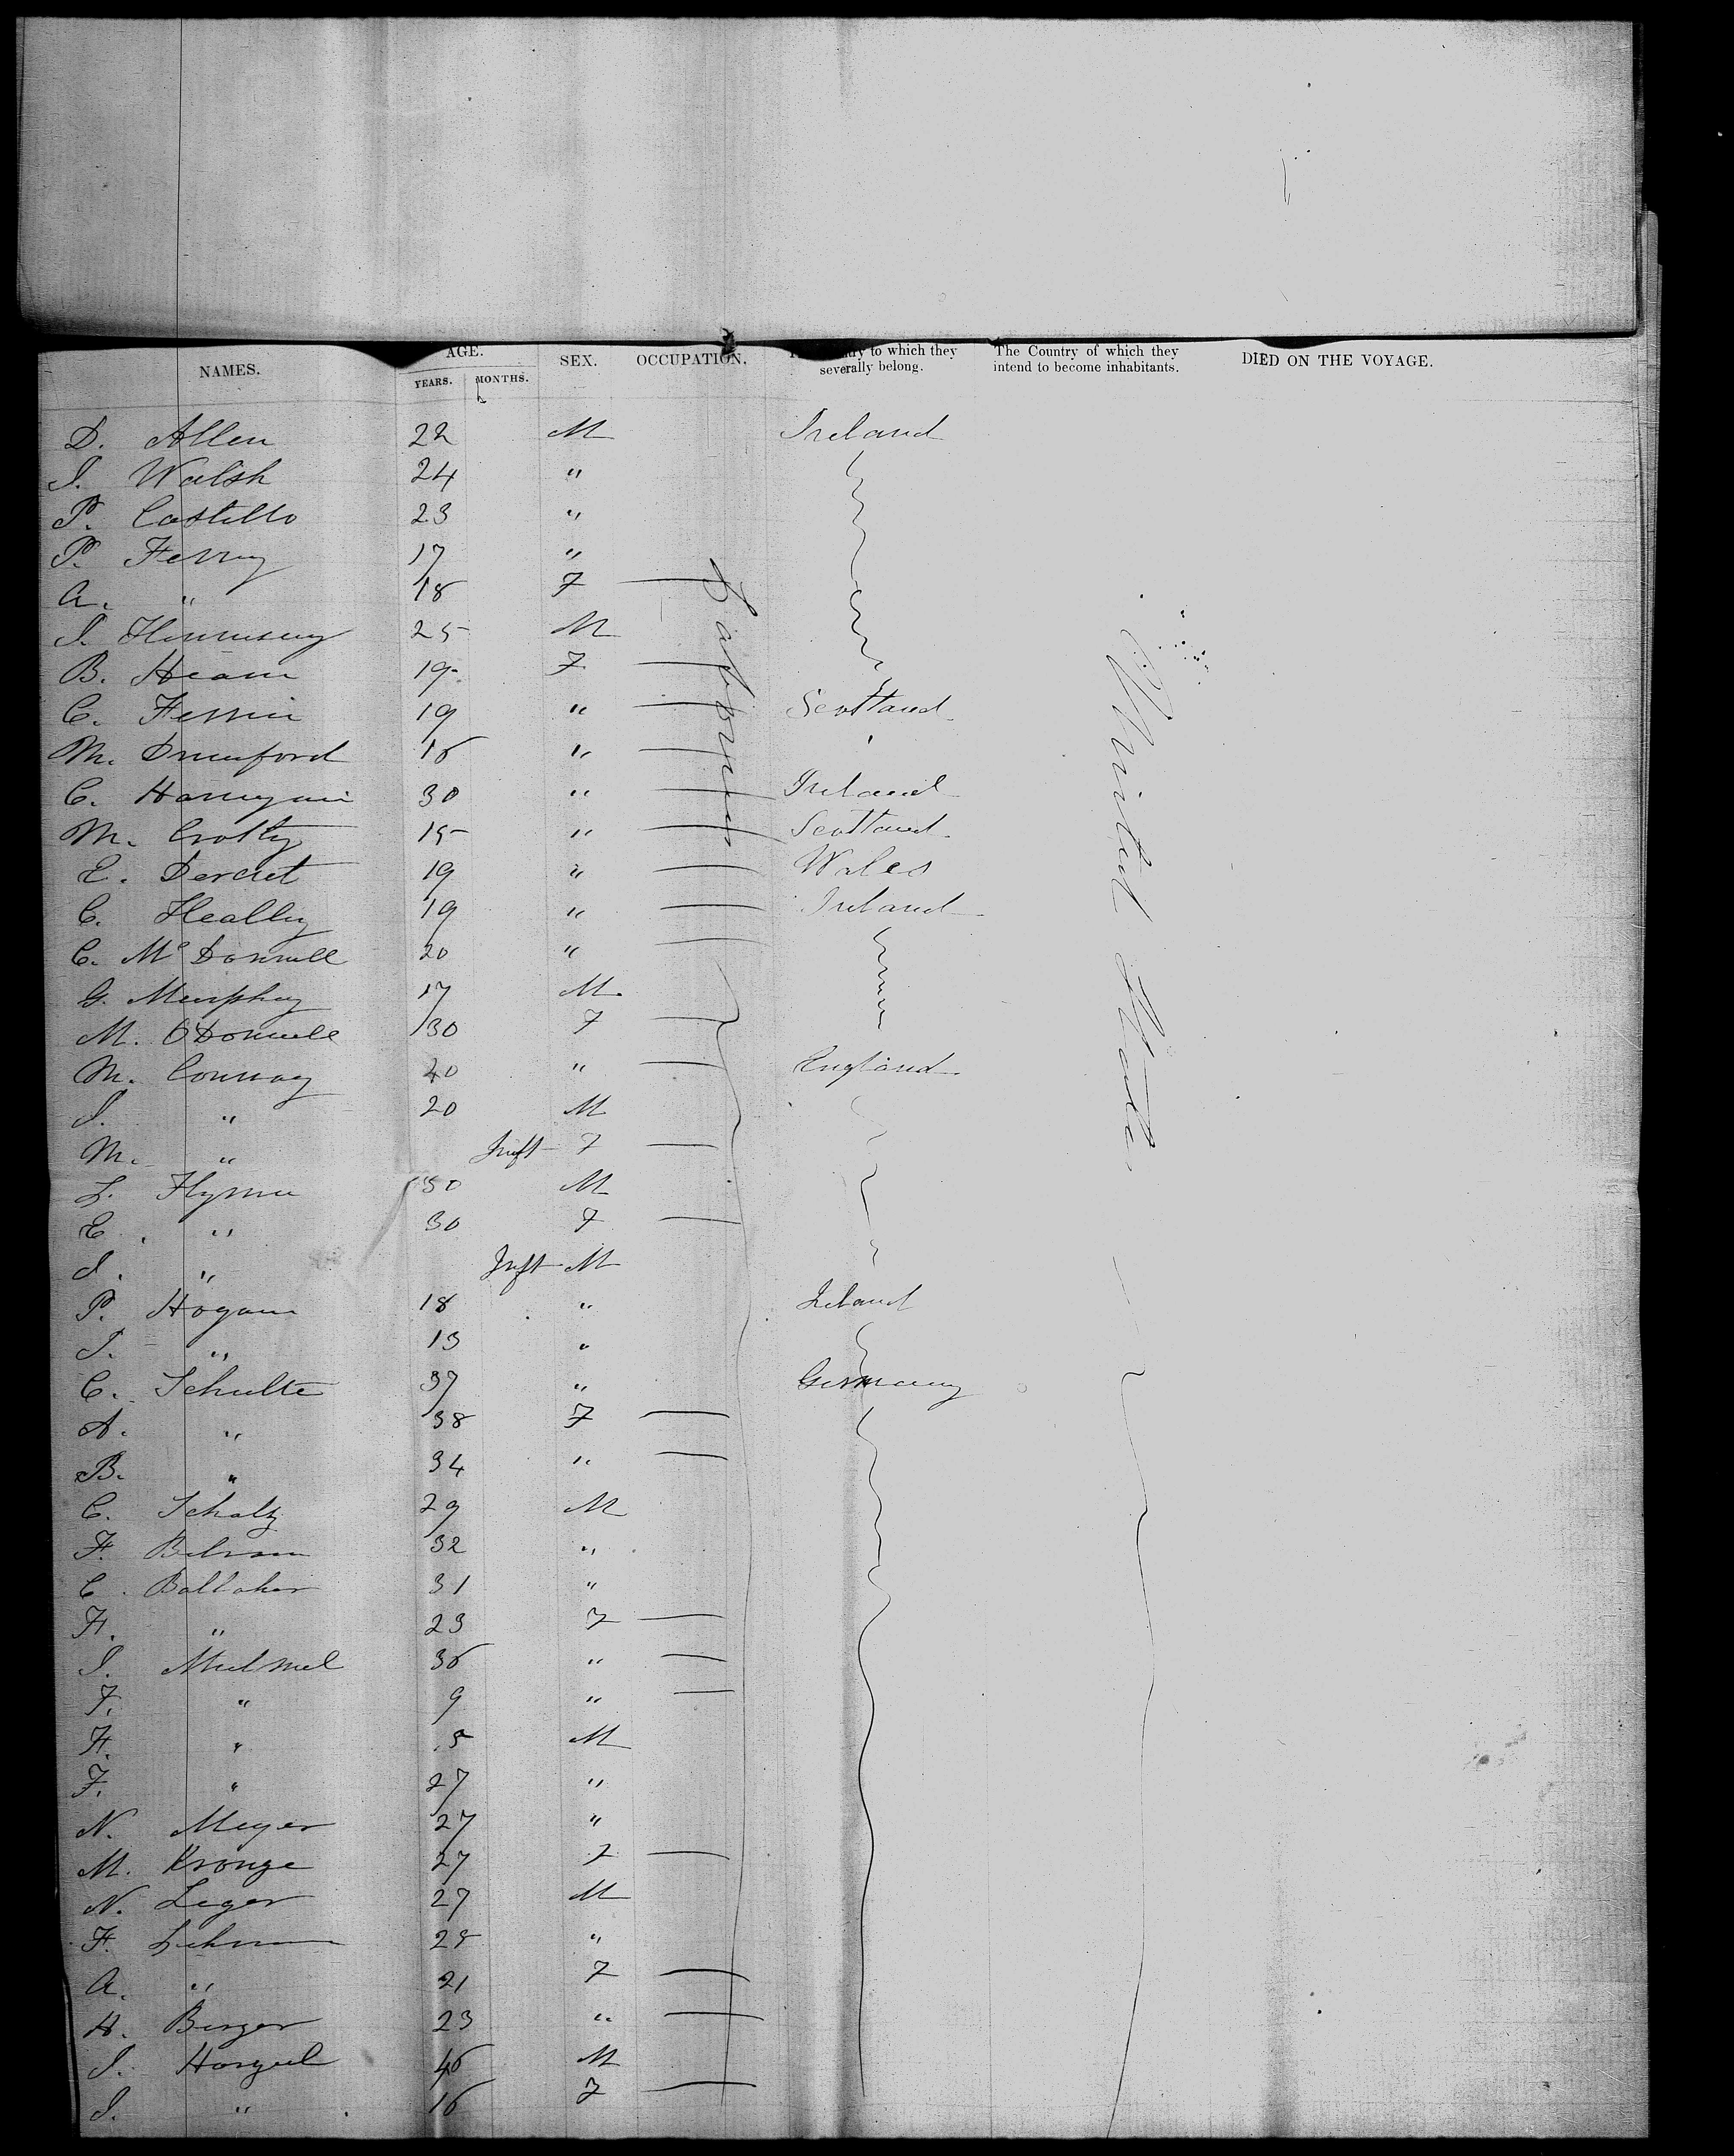 NAMES. AGE. YEARS. MONTHS. SEX. OCCUPATION. to which they severally belong. The Country of which they intend to become inhabitants. DIED ON THE VOYAGE.
D. Allen 22 M Ireland
J. Walsh 24 "
P. Costello 23 "
P. Ferry 17 "
A. " 18 F —
J. Hennesey 25 M
B. Heam 19 F —
C. Ferrin 19 " — Scotland
M. Drumford 16 " — "
C. Hannyan 30 " — Ireland
M. Crotty 15 " — Scotland
E. 19 " — Wales
C. Healley 19 " — Ireland
C. McDonnell 20 " —
G. Murphy 17 M
M. O'Donnell 30 F —
M. Conway 40 " — England
J. " 20 M
M. " Inft F —
L. Flynn 30 M
E. " 30 F —
J. " Inft M
P. Hogan 18 " Ireland
J. " 13 "
C. Schulte 37 " Germany
A. " 38 F —
B. " 34 " —
C. Schalz 29 M
F. 32 "
C. 31 "
F. " 23 F —
J. 36 " —
F. " 9 " —
F. " 5 M
F. " 27 "
N. Meyer 27 "
M. Kronge 27 F —
N. Leger 27 M
F. Lehman 28 "
A. " 21 F —
H. Berger 23 " —
J. 46 M
J. " 16 F —
Labourers
United States